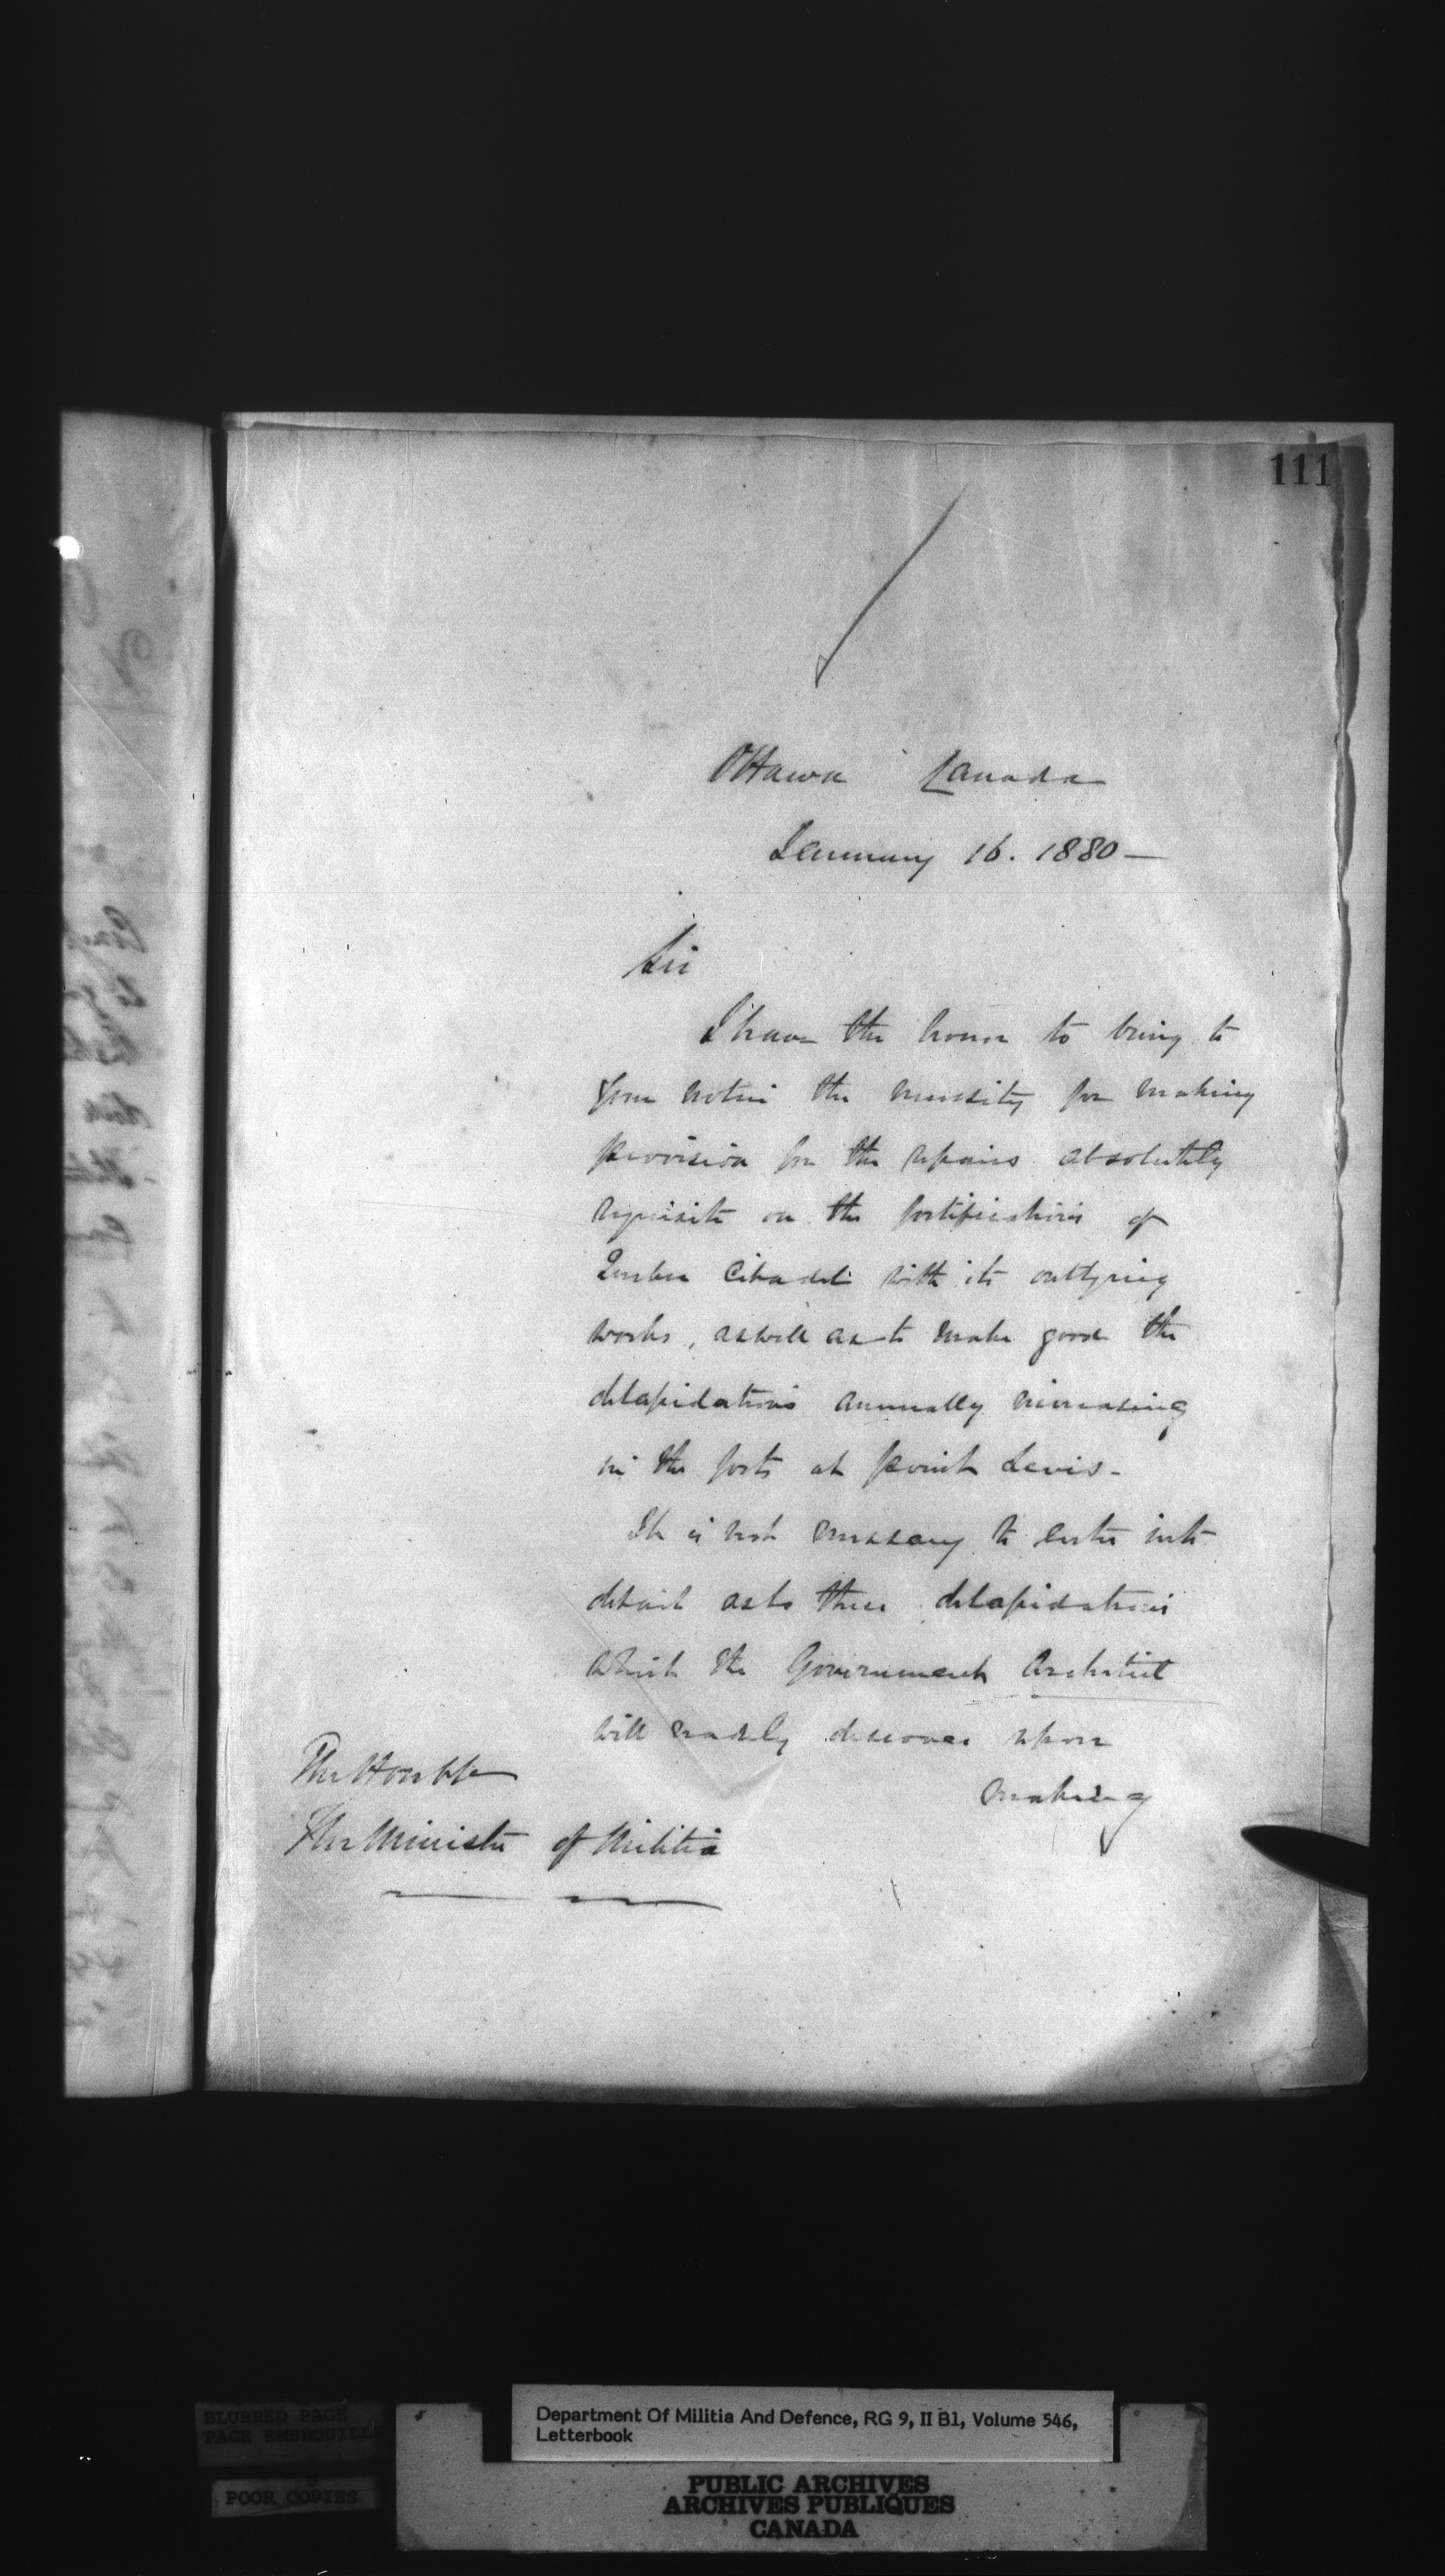 111
Ottawa Canada
January 16. 1880 —
Sir
I have the honor to bring to
your notice the necessity for making
provision for the repairs absolutely
requisite on the fortifications of
Quebec Citadel with its outlying
works, as well as to make good the
delapidations annually increasing
in the forts at point Levis -
It is not necessary to enter into
detail as to these delapidations
which the Government Architect
will readily discover upon
making
The Honble
The Minister of Militia
Department Of Militia And Defence, RG 9, II B1, Volume 546,
Letterbook
BLURRED PAGE
PAGE EMBROUILL
POOR COPIES
PUBLIC ARCHIVES
ARCHIVES PUBLIQUES
CANADA